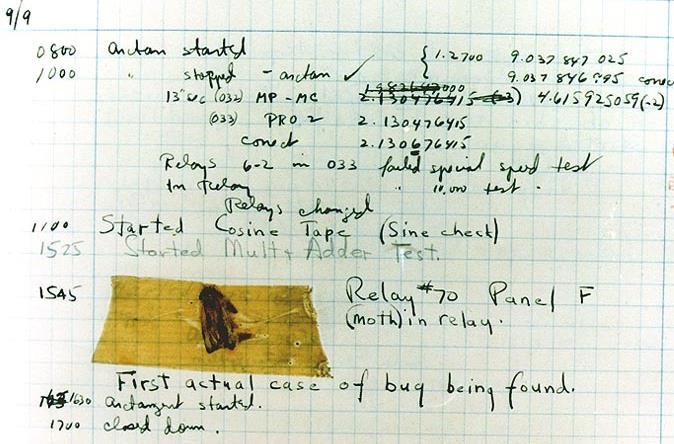 9/9
0800 arctan started { 1.2700 9.037 847 025
1000 " stopped - arctan ✓ 9.037 846 995 correct
13"uc (032) MP-MC 2.130476415 (-3) 4.615925059(-2)
(033) PRO 2 2.130476415
correct 2.130676415
Relays 6-2 in 033 failed special speed test
In Relay " 10,000 test.
Relays changed
1100 Started Cosine Tape (Sine check)
1525 Started Mult + Adder Test.
1545 Relay #70 Panel F
(moth) in relay.
First actual case of bug being found.
1630 arctangent started.
1700 closed down.